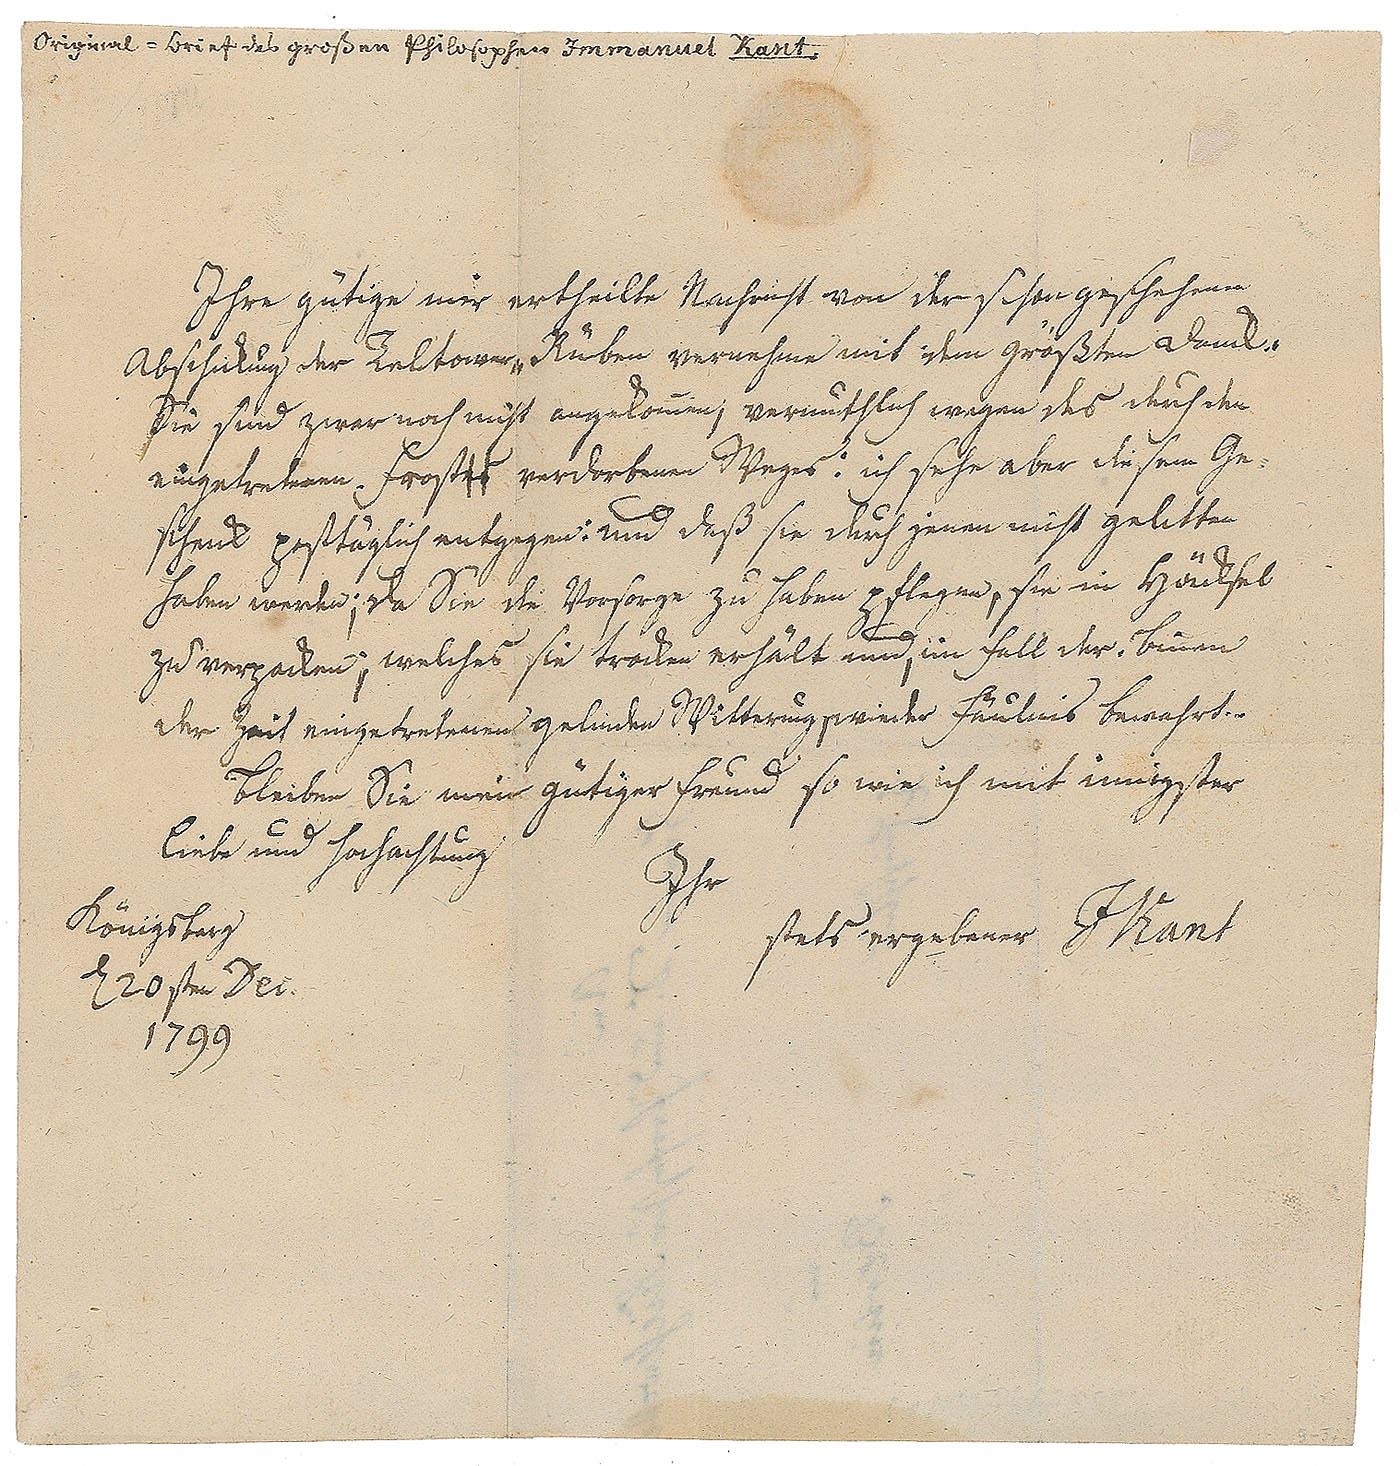 Original = Brief des großen Philosophen Immanuel Kant.
Ihre gütige mir ertheilte Nachricht von der schon geschehenen
Abschickung der Teltower Rüben vernehme mit dem größten Dank.
Sie sind zwar noch nicht angekom̅en, vermuthlich wegen des durch den
eingetretenen Frost verdorbenen Weges: ich sehe aber diesem Ge=
schenk posttäglich entgegen: und daß sie durch jenen nicht gelitten
haben werden; da Sie die Vorsorge zu haben pflegen, sie in Häcksel
zu verpacken; welches sie trocken erhält und, im Fall der binnen
der Zeit eingetretenen gelinden Witterung, wieder Fäulnis bewahrt.
Bleiben Sie mein gütiger Freund so wie ich mit innigster
Liebe und Hochachtung
Ihr
stets ergebener J Kant
Königsberg
d 20sten Dec.
1799